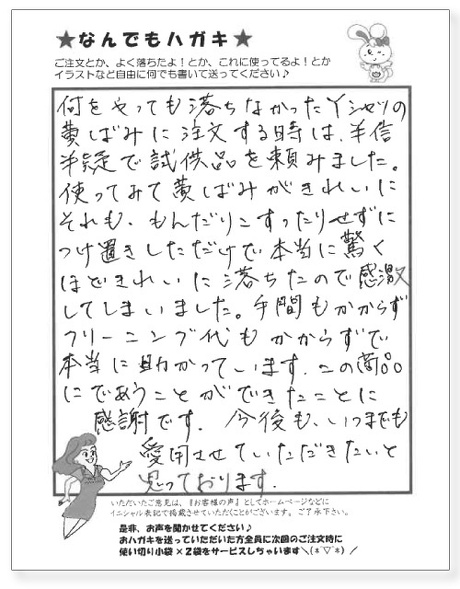 ★なんでもハガキ★
ご注文とか、よく落ちたよ！とか、これに使ってるよ！とか
イラストなど自由に何でも書いて送ってください♪
何をやっても落ちなかったYシャツの
黄ばみに注文する時は、半信
半疑で試供品を頼みました。
使ってみて黄ばみがきれいに
それも、もんだりこすったりせずに
つけ置きしただけで本当に驚く
ほどきれいに落ちたので感激
してしまいました。手間もかからず
クリーニング代もかからずで
本当に助かっています．この商品
にであうことができたことに
感謝です．今後も、いつまでも
愛用させていただきたいと
思っております．
いただいたご意見は、『お客様の声』としてホームページなどに
イニシャル表記で掲載させていただくことがございます。ご了承下さい。
是非、お声を聞かせてください♪
おハガキを送っていただいた方全員に次回のご注文時に
使い切り小袋×2袋をサービスしちゃいます＼(*ˊ▽ˋ*)／